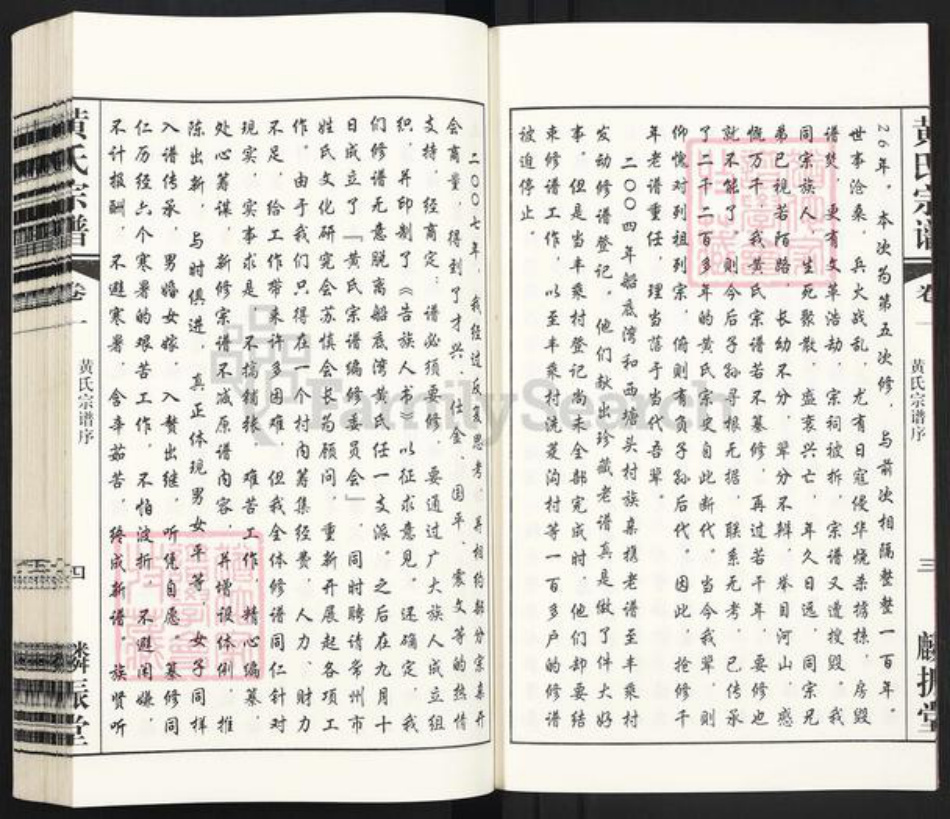 黄氏宗谱
卷一
黄氏宗谱序
三
麟振堂
26年。本次为第五次修，与前次相隔整整一百年。
世事沧桑，兵火战乱，尤有日寇侵华烧杀掳掠，房毁
谱焚，更有文革浩劫，宗祠被拆，宗谱又遭搜毁。我
同宗族人，生死聚散，盛衰兴亡，年久日远，同宗兄
弟已视若陌路，长幼不分，辈分不辩，举目河山，感
慨万千。我黄氏宗谱若不纂修，再过若干年，要修也
就不能了。则今后子孙寻根无据，联系无考，已传承
了二千二百多年的黄氏宗史自此断代。当今我辈，则
仰愧对列祖列宗，俯则有负子孙后代。因此，抢修千
年老谱重任，理当落于当代吾辈。
二〇〇四年船底湾和西塘头村族亲携老谱至丰乘村
发动修谱登记。他们献出珍藏老谱真是做了件大好
事。但是当丰乘村登记尚未全部完成时，他们却要结
束修谱工作，以至丰乘村洗菱沟村等一百多户的修谱
被迫停止。
二〇〇七年，我经过反复思考，并相约部分宗亲开
会商量，得到了才兴、仕金、国平、震文等的热情
支持，经商定：谱必须要修，要通过广大族人成立组
织，并印制了《告族人书》以征求意见。还确定，我
们修谱无意脱离船底湾黄氏任一支派。之后在九月十
日成立了「黄氏宗谱编修委员会」，同时聘请常州市
姓氏文化研究会苏慎会长为顾问，重新开展起各项工
作。由于我们只得在一个村内筹集经费，人力、财力
不足，给工作带来许多困难，但我全体修谱同仁针对
现实，实事求是，不搞铺张，难苦工作，精心编纂，
处心筹谋，新修宗谱不减原谱内容，并增设体例，推
陈出新，与时俱进，真正体现男女平等，女子同样
入谱传承，男婚女嫁，入赘出继，听凭自愿。纂修同
仁历经六个寒暑的艰苦工作，不怕波折，不避闲嫌，
不计报酬，不避寒暑，含辛茹苦，终成新谱，族贤昕
黄氏宗谱
卷一
黄氏宗谱序
四
麟振堂
FamilySearch